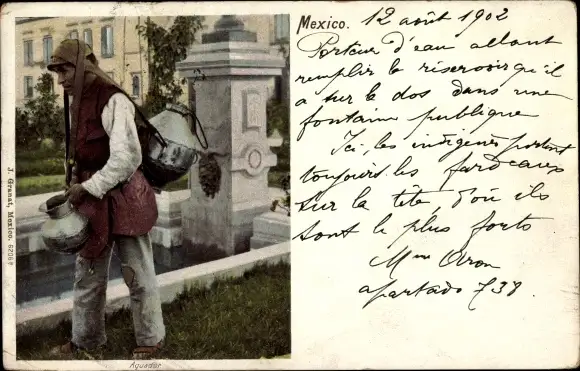 Mexico. 12 août 1902
Porteur d'eau allant
remplir le réservoir qu'il
a sur le dos dans une
fontaine publique
Ici, les indigènes portent
toujours les fardeaux
sur la tête d'où ils
sont le plus forts
Mme
apartado 738
J. Granat, Mexico.
Aguador